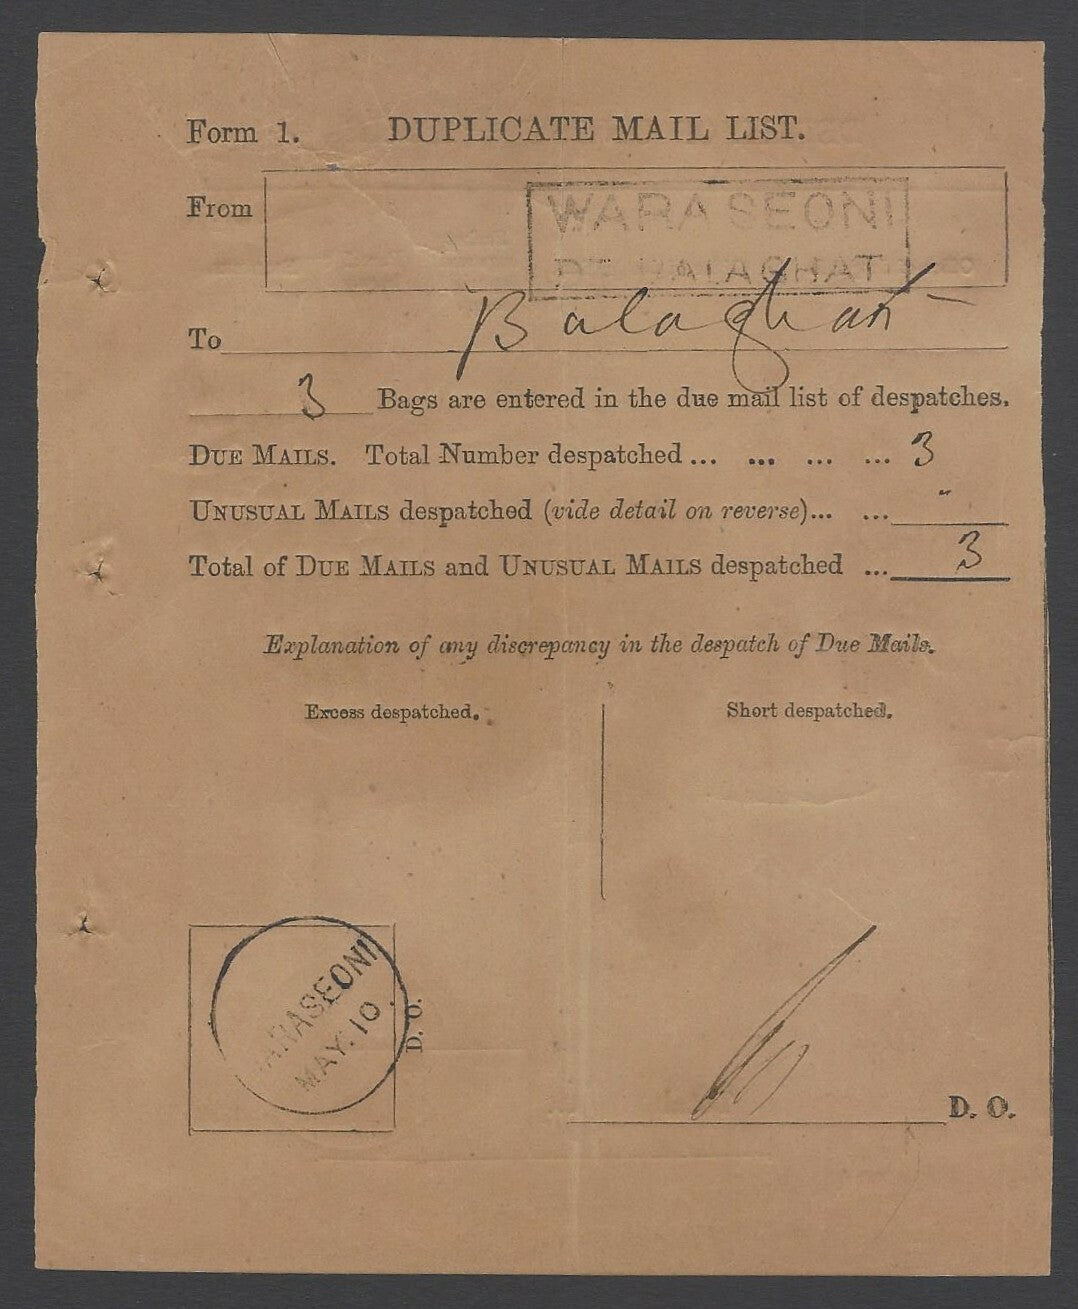 Form 1. DUPLICATE MAIL LIST.
From
WARASEONI
BALAGHAT
To Balaghat
3 Bags are entered in the due mail list of despatches.
DUE MAILS. Total Number despatched ... ... ... ... 3
UNUSUAL MAILS despatched (vide detail on reverse)... ... "
Total of DUE MAILS and UNUSUAL MAILS despatched ... 3
Explanation of any discrepancy in the despatch of Due Mails.
Excess despatched. Short despatched.
WARASEONI
MAY. 10
D. O.
D. O.